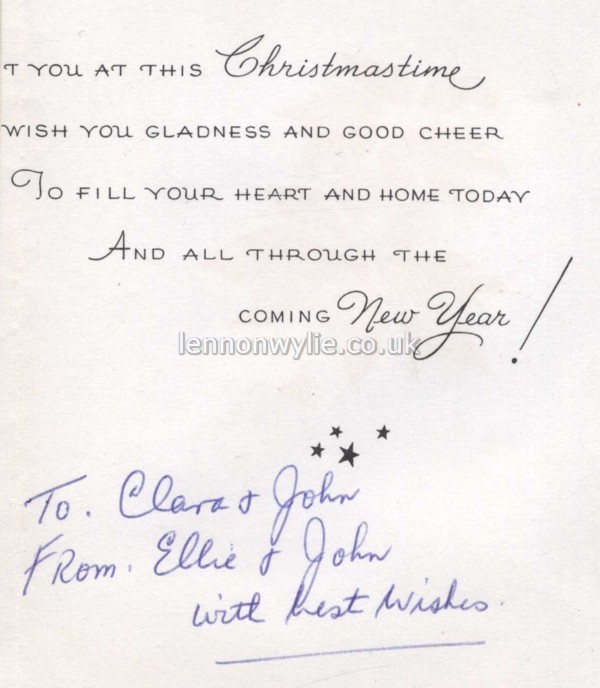 T YOU AT THIS Christmastime
WISH YOU GLADNESS AND GOOD CHEER
To FILL YOUR HEART AND HOME TODAY
AND ALL THROUGH THE
COMING New Year!
lennonwylie.co.uk
To. Clara & John
From. Ellie & John
with best wishes.